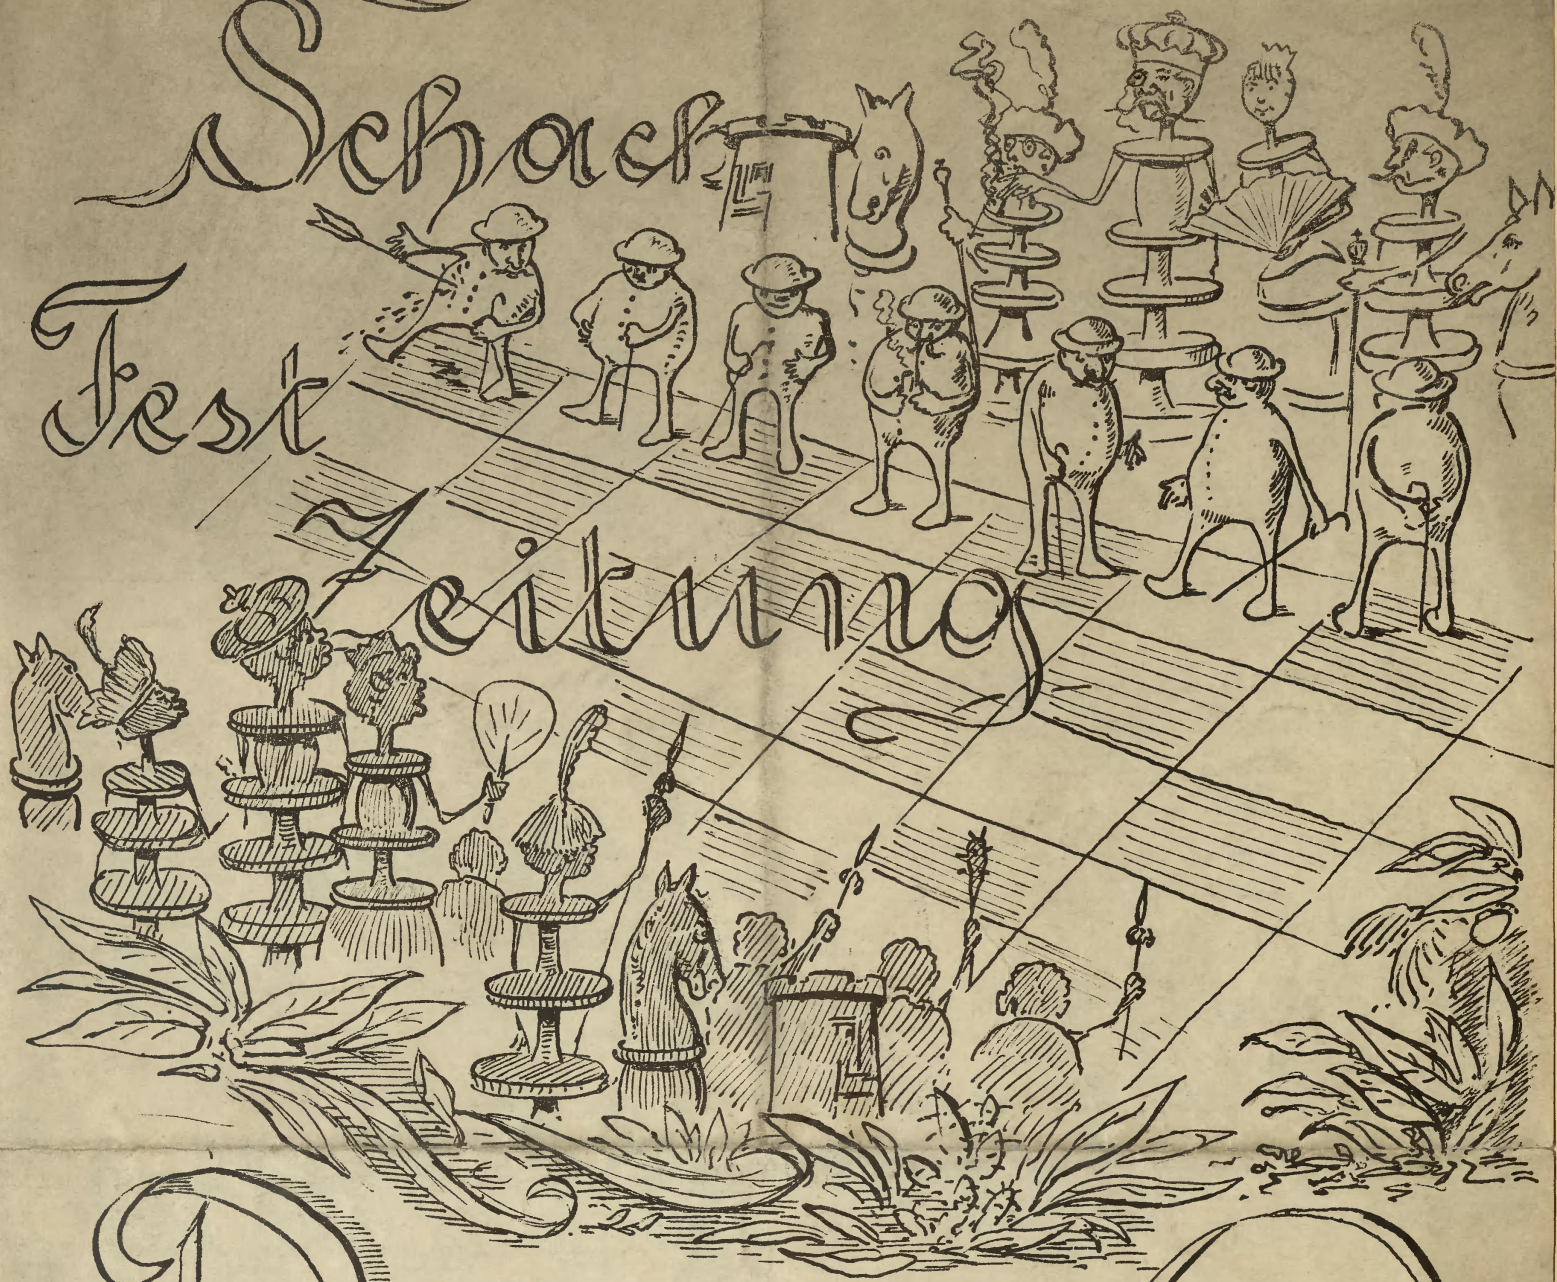 Schach
Fest
Zeitung